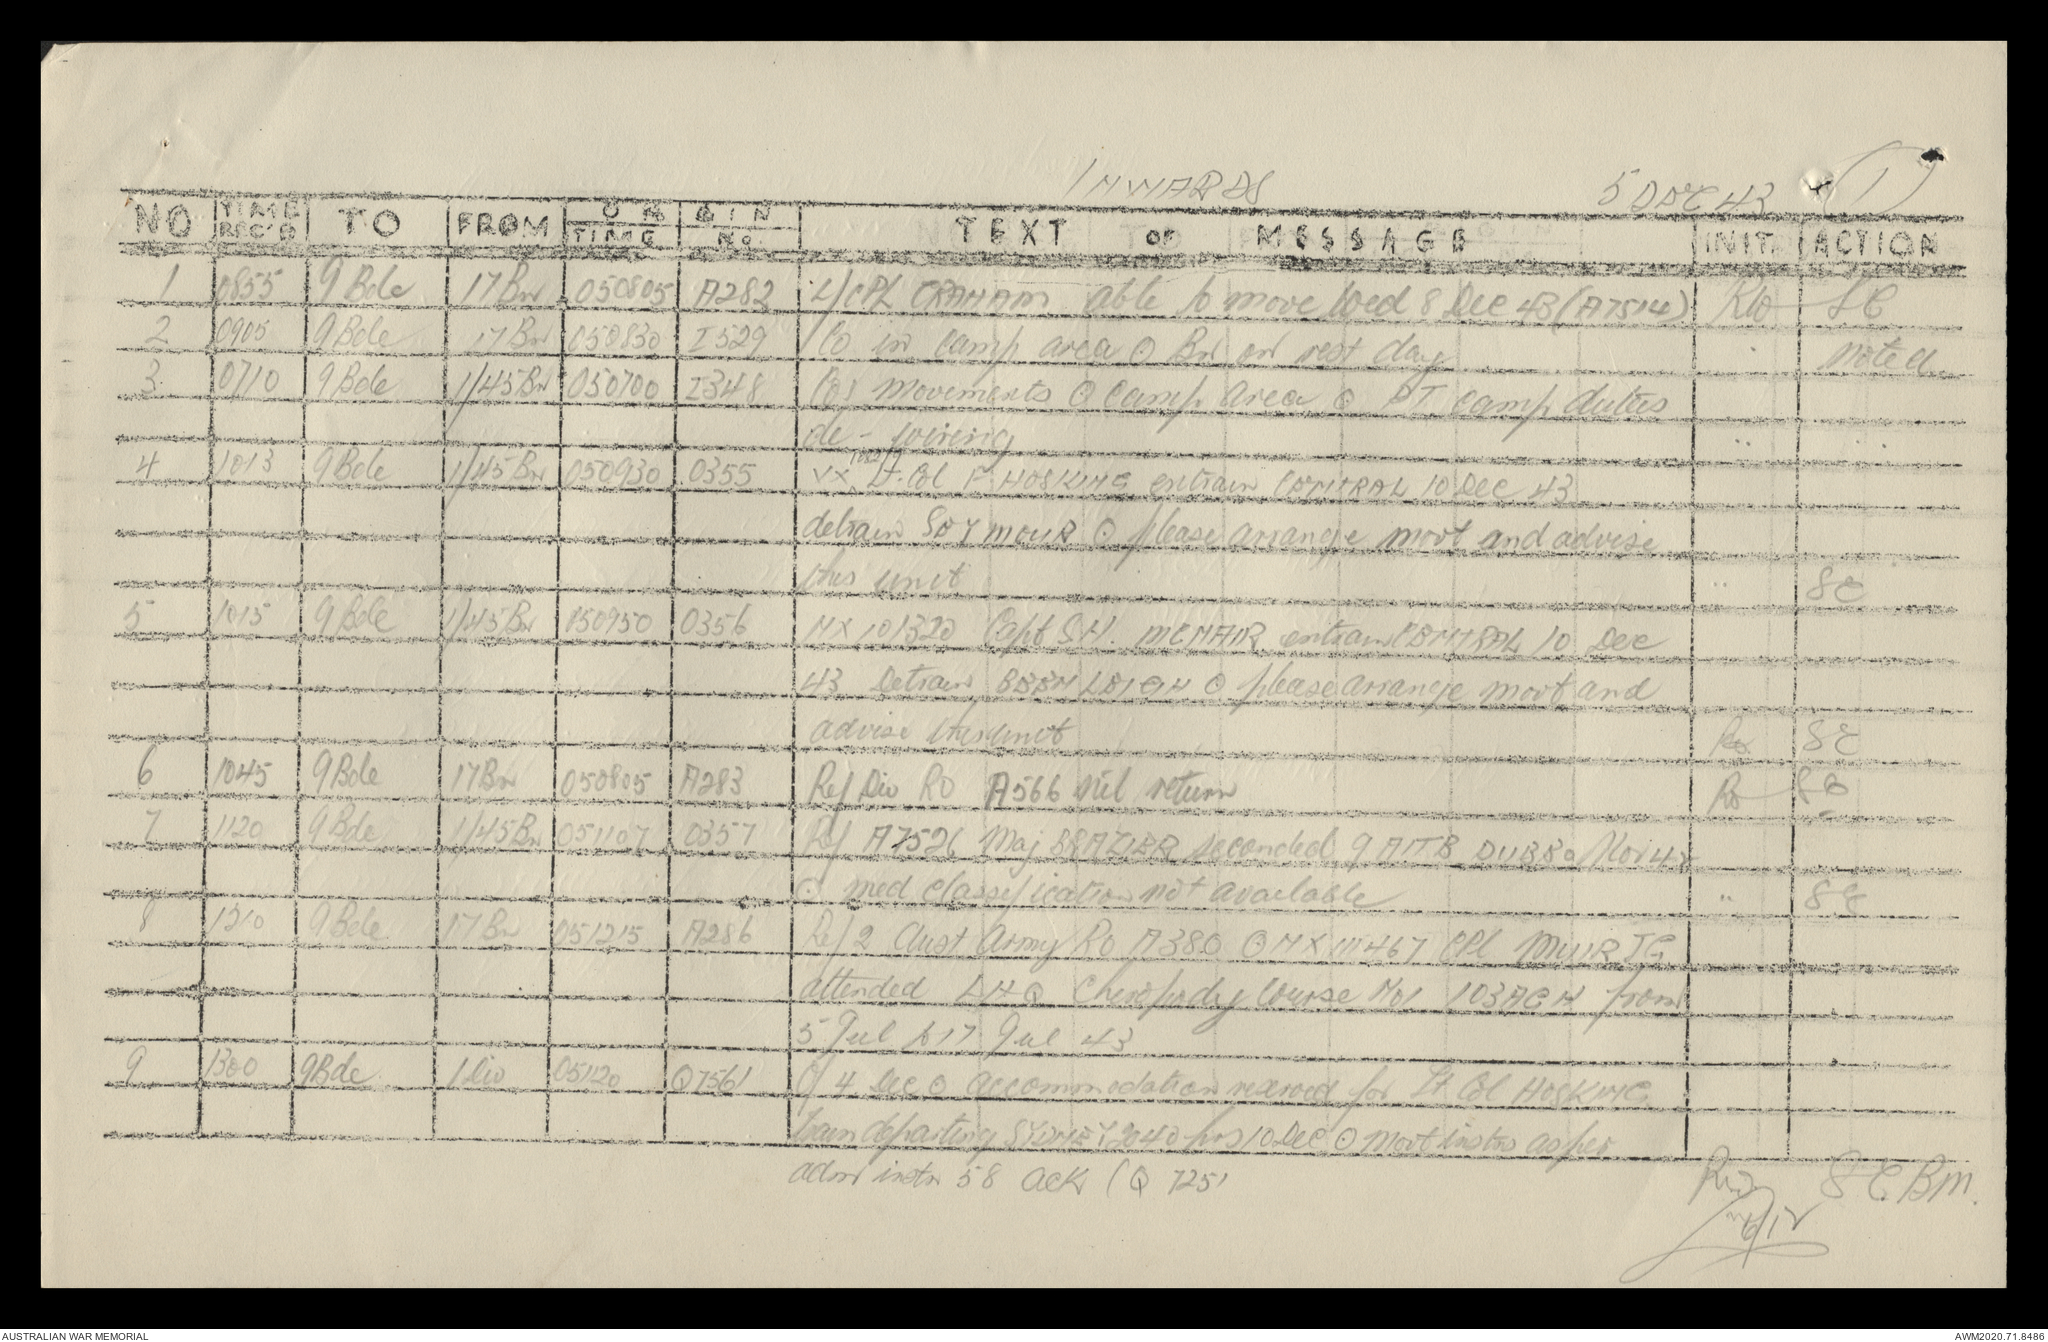 INWARDS 5 DEC 43 (1)
NO TIME REC'D TO FROM ORIGIN TIME No. TEXT OF MESSAGE INIT. ACTION
1 0855 9 Bde 17 Bn 050805 A282 L/CPL GRAHAM able to move Wed 8 Dec 43 (A7514) SC
2 0905 9 Bde 17 Bn 050830 I529 Co in camp area ⊙ Bn on rest day noted
3 0710 9 Bde 1/45 Bn 050700 I348 Cos movements ⊙ camp area ⊙ PT camp duties
de-wiring " "
4 1013 9 Bde 1/45 Bn 050930 0355 VX Lt. Col F HOSKING entrain CENTRAL 10 Dec 43
detrain SEYMOUR ⊙ please arrange movt and advise
this unit " SC
5 1015 9 Bde 1/45 Bn 050950 0356 NX 101320 Capt S.H. MCNAIR entrain CENTRAL 10 Dec
43 Detrain BEENLEIGH ⊙ please arrange movt and
advise this unit SC
6 1045 9 Bde 17 Bn 050805 A283 Ref Div RO A566 nil return
7 1120 9 Bde 1/45 Bn 051107 0357 Ref A7526 Maj BRAZIER seconded 9 AITB DUBBO Nov 42
⊙ med classification not available " SC
8 1210 9 Bde 17 Bn 051215 A286 Ref 2 Aust Army RO A380 ⊙ NX 111467 CPL MUIR JG
attended LHQ Chiropody Course No1 103 AGH from
5 Jul to 17 Jul 43
9 1300 9 Bde 1 Div 051120 Q7561 Of 4 Dec ⊙ accommodation reserved for Lt Col HOSKING
train departing SYDNEY 2040 hrs 10 Dec ⊙ Movt instns as per
adm instn 58 ack (Q 7251 SC. BM.
6/12
AUSTRALIAN WAR MEMORIAL AWM2020.71.8486